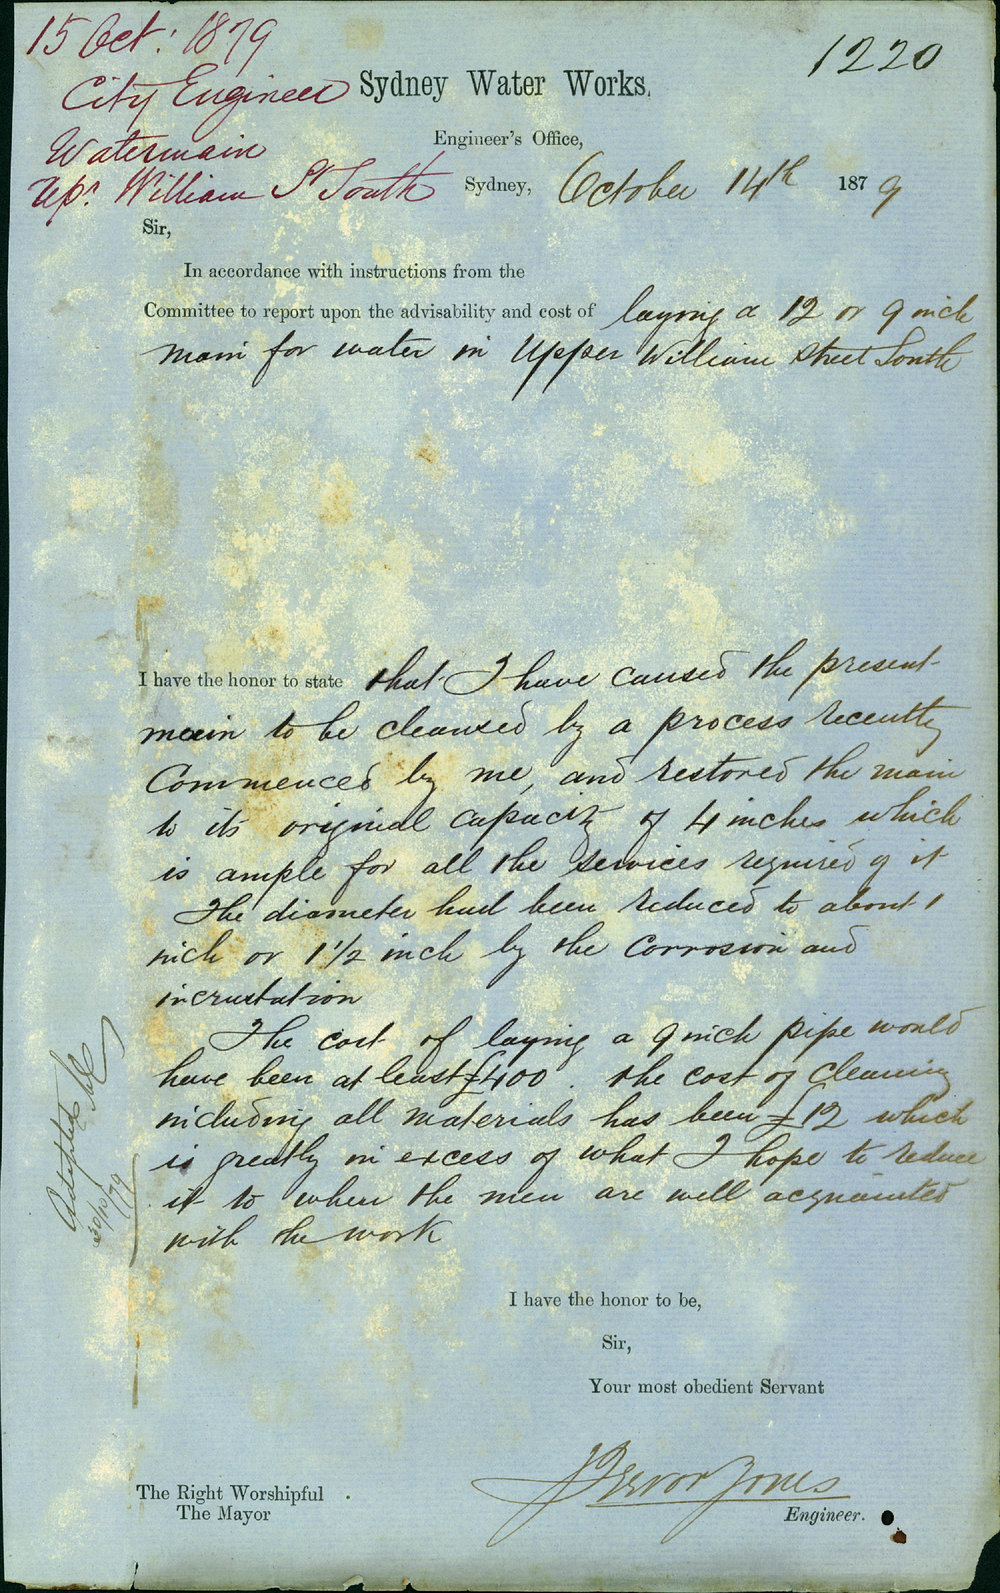 15 Oct: 1879
1220
City Engineer
Sydney Water Works.
Watermain
Engineer's Office,
Upr. William St South
Sydney, October 14th 1879
Sir,
In accordance with instructions from the
Committee to report upon the advisability and cost of laying a 12 or 9 inch
main for water in Upper William Street South
I have the honor to state that I have caused the present
main to be cleansed by a process recently
Commenced by me, and restored the main
to its original capacity of 4 inches which
is ample for all the services required of it
The diameter had been reduced to about 1
inch or 1 1/2 inch by the corrosion and
incrustation
The cost of laying a 9 inch pipe would
have been at least £400. the cost of cleaning
including all materials has been £12 which
is greatly in excess of what I hope to reduce
it to when the men are well acquainted
with the work
20/10/79
I have the honor to be,
Sir,
Your most obedient Servant
J Trevor Jones
Engineer.
The Right Worshipful
The Mayor